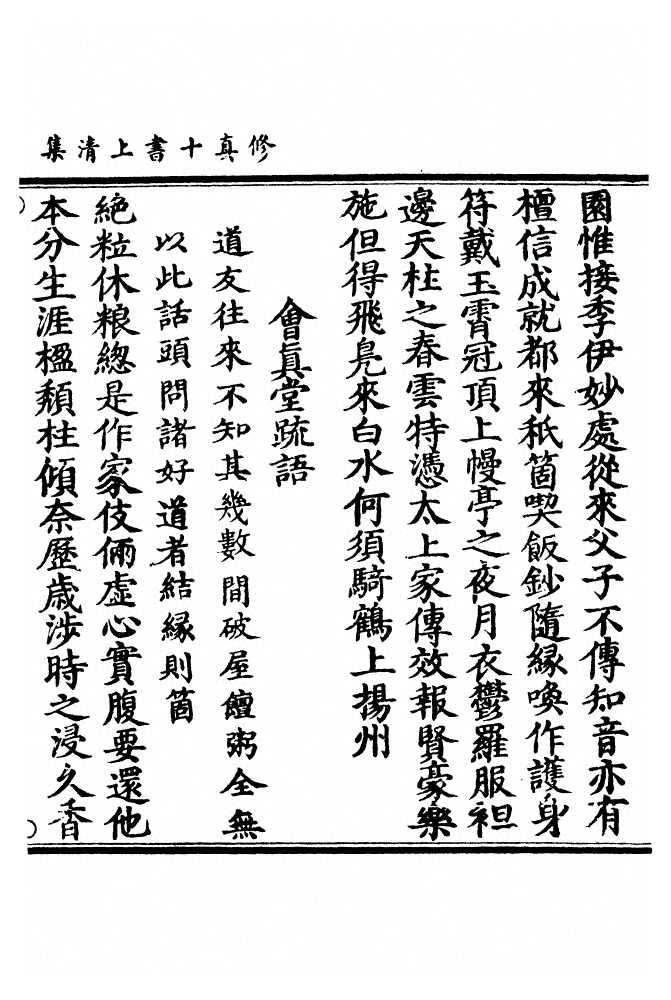 修真十書上清集
園惟接季伊妙處從來父子不傳知音亦有
檀信成就都來秖箇喫飯鈔隨緣喚作護身
符戴玉霄冠頂上幔亭之夜月衣鬱羅服袒
邊天柱之春雲特憑太上家傳效報賢豪樂
施但得飛鳧來白水何須騎鶴上揚州
會眞堂疏語
道友往來不知其幾數間破屋饘粥全無
以此話頭問諸好道者結緣則箇
絶粒休粮緫是作家伎倆虛心實腹要還他
本分生涯楹頽柱傾奈歷歲涉時之浸久香